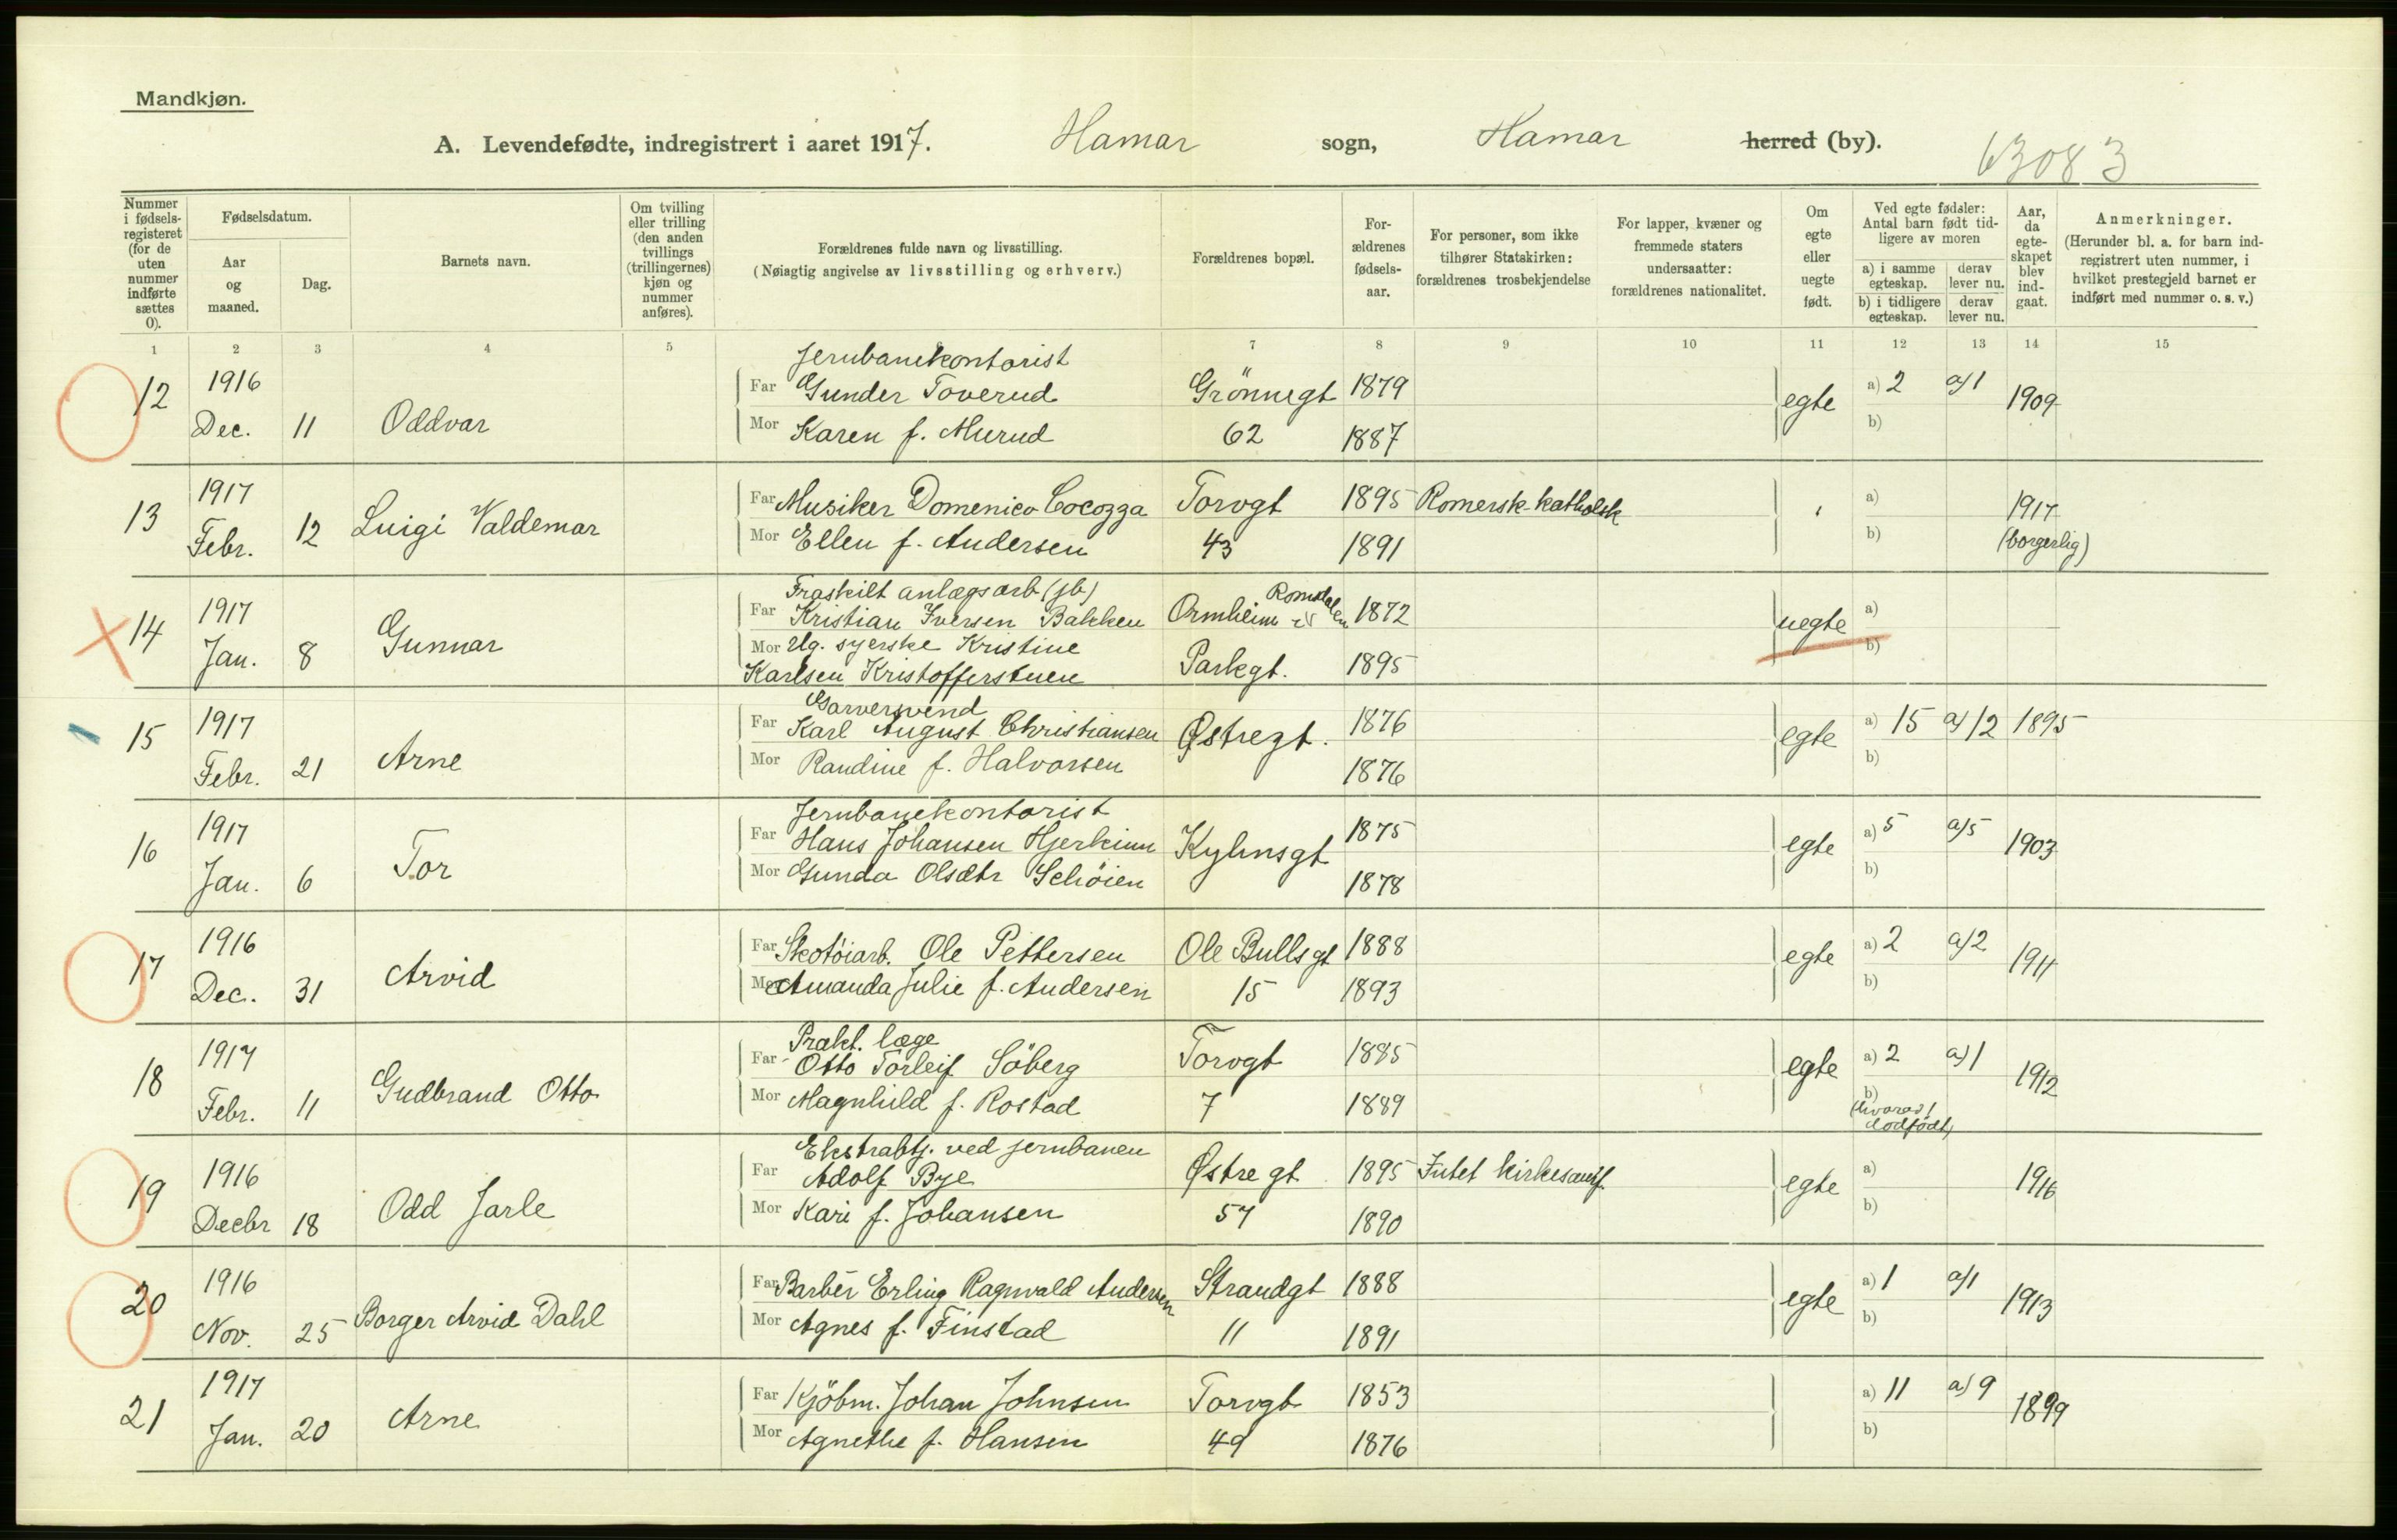 Mandkjøn.
A. Levendefødte, indregistrert i aaret 1917. Hamar sogn, Hamar herred (by). 63083
Nummer i fødsels-registeret (for de uten nummer indførte sættes 0).
Fødselsdatum.
Aar og maaned.
Dag.
Barnets navn.
Om tvilling eller trilling (den anden tvillings (trillingernes) kjøn og nummer anføres).
Forældrenes fulde navn og livsstilling.
(Nøiagtig angivelse av livsstilling og erhverv.)
Forældrenes bopæl.
For-ældrenes fødsels-aar.
For personer, som ikke tilhører Statskirken: forældrenes trosbekjendelse
For lapper, kvæner og fremmede staters undersaatter: forældrenes nationalitet.
Om egte eller uegte født.
Ved egte fødsler: Antal barn født tid-ligere av moren
a) i samme egteskap. derav lever nu.
b) i tidligere egteskap. derav lever nu.
Aar, da egte-skapet blev ind-gaat.
Anmerkninger.
(Herunder bl. a. for barn ind-registrert uten nummer, i hvilket prestegjeld barnet er indført med nummer o. s. v.)
1 2 3 4 5 7 8 9 10 11 12 13 14 15
Jernbanekontorist
12 1916 Far Gunder Toverud Grönnegt 1879 egte a) 2 a) 1 1909
Dec. 11 Oddvar Mor Karen f. Murud 62 1887 b)
13 1917 Luigi Valdemar Far Musiker Domenico Cocozza Torvgt 1895 Romersk-katholsk a) 1917
Febr. 12 Mor Ellen f. Andersen 43 1891 b) (borgerlig)
Fraskilt anlægsarb (jb)
14 1917 Gunnar Far Kristian Iversen Bakken Ormheim i Romsdalen 1872 uegte a)
Jan. 8 Mor Ug. syerske Kristine Parkgt. 1895 b)
Karlsen Kristofferstuen
Garversvend
15 1917 Arne Far Karl August Christiansen Østregt. 1876 egte a) 15 a) 12 1895
Febr. 21 Mor Randine f. Halvorsen 1876 b)
Jernbanekontorist
16 1917 Tor Far Hans Johansen Hjerkinn Kylnsgt 1875 egte a) 5 a) 5 1903
Jan. 6 Mor Gunda Olsdtr Schöien 1878 b)
17 1916 Arvid Far Skotöiarb. Ole Pettersen Ole Bullsgt 1888 egte a) 2 a) 2 1911
Dec. 31 Mor Amanda Julie f. Andersen 15 1893 b)
Prakt. læge
18 1917 Gudbrand Otto Far Otto Torleif Söberg Torvgt 1885 egte a) 2 a) 1 1912
Febr. 11 Mor Magnhild f. Rostad 7 1889 b)
(hvorav 1 dödfödt)
Ekstrabtj. ved jernbanen
19 1916 Odd Jarle Far Adolf Bye Østre gt 1895 Intet kirkesamf. egte a) 1916
Decbr 18 Mor Kari f. Johansen 57 1890 b)
20 1916 Borger Arvid Dahl Far Barbér Erling Ragnvald Andersen Strandgt 1888 egte a) 1 a) 1 1913
Nov. 25 Mor Agnes f. Finstad 11 1891 b)
21 1917 Arne Far Kjöbm. Johan Johnsen Torvgt 1853 a) 11 a) 9 1899
Jan. 20 Mor Agnethe f. Hansen 49 1876 b)